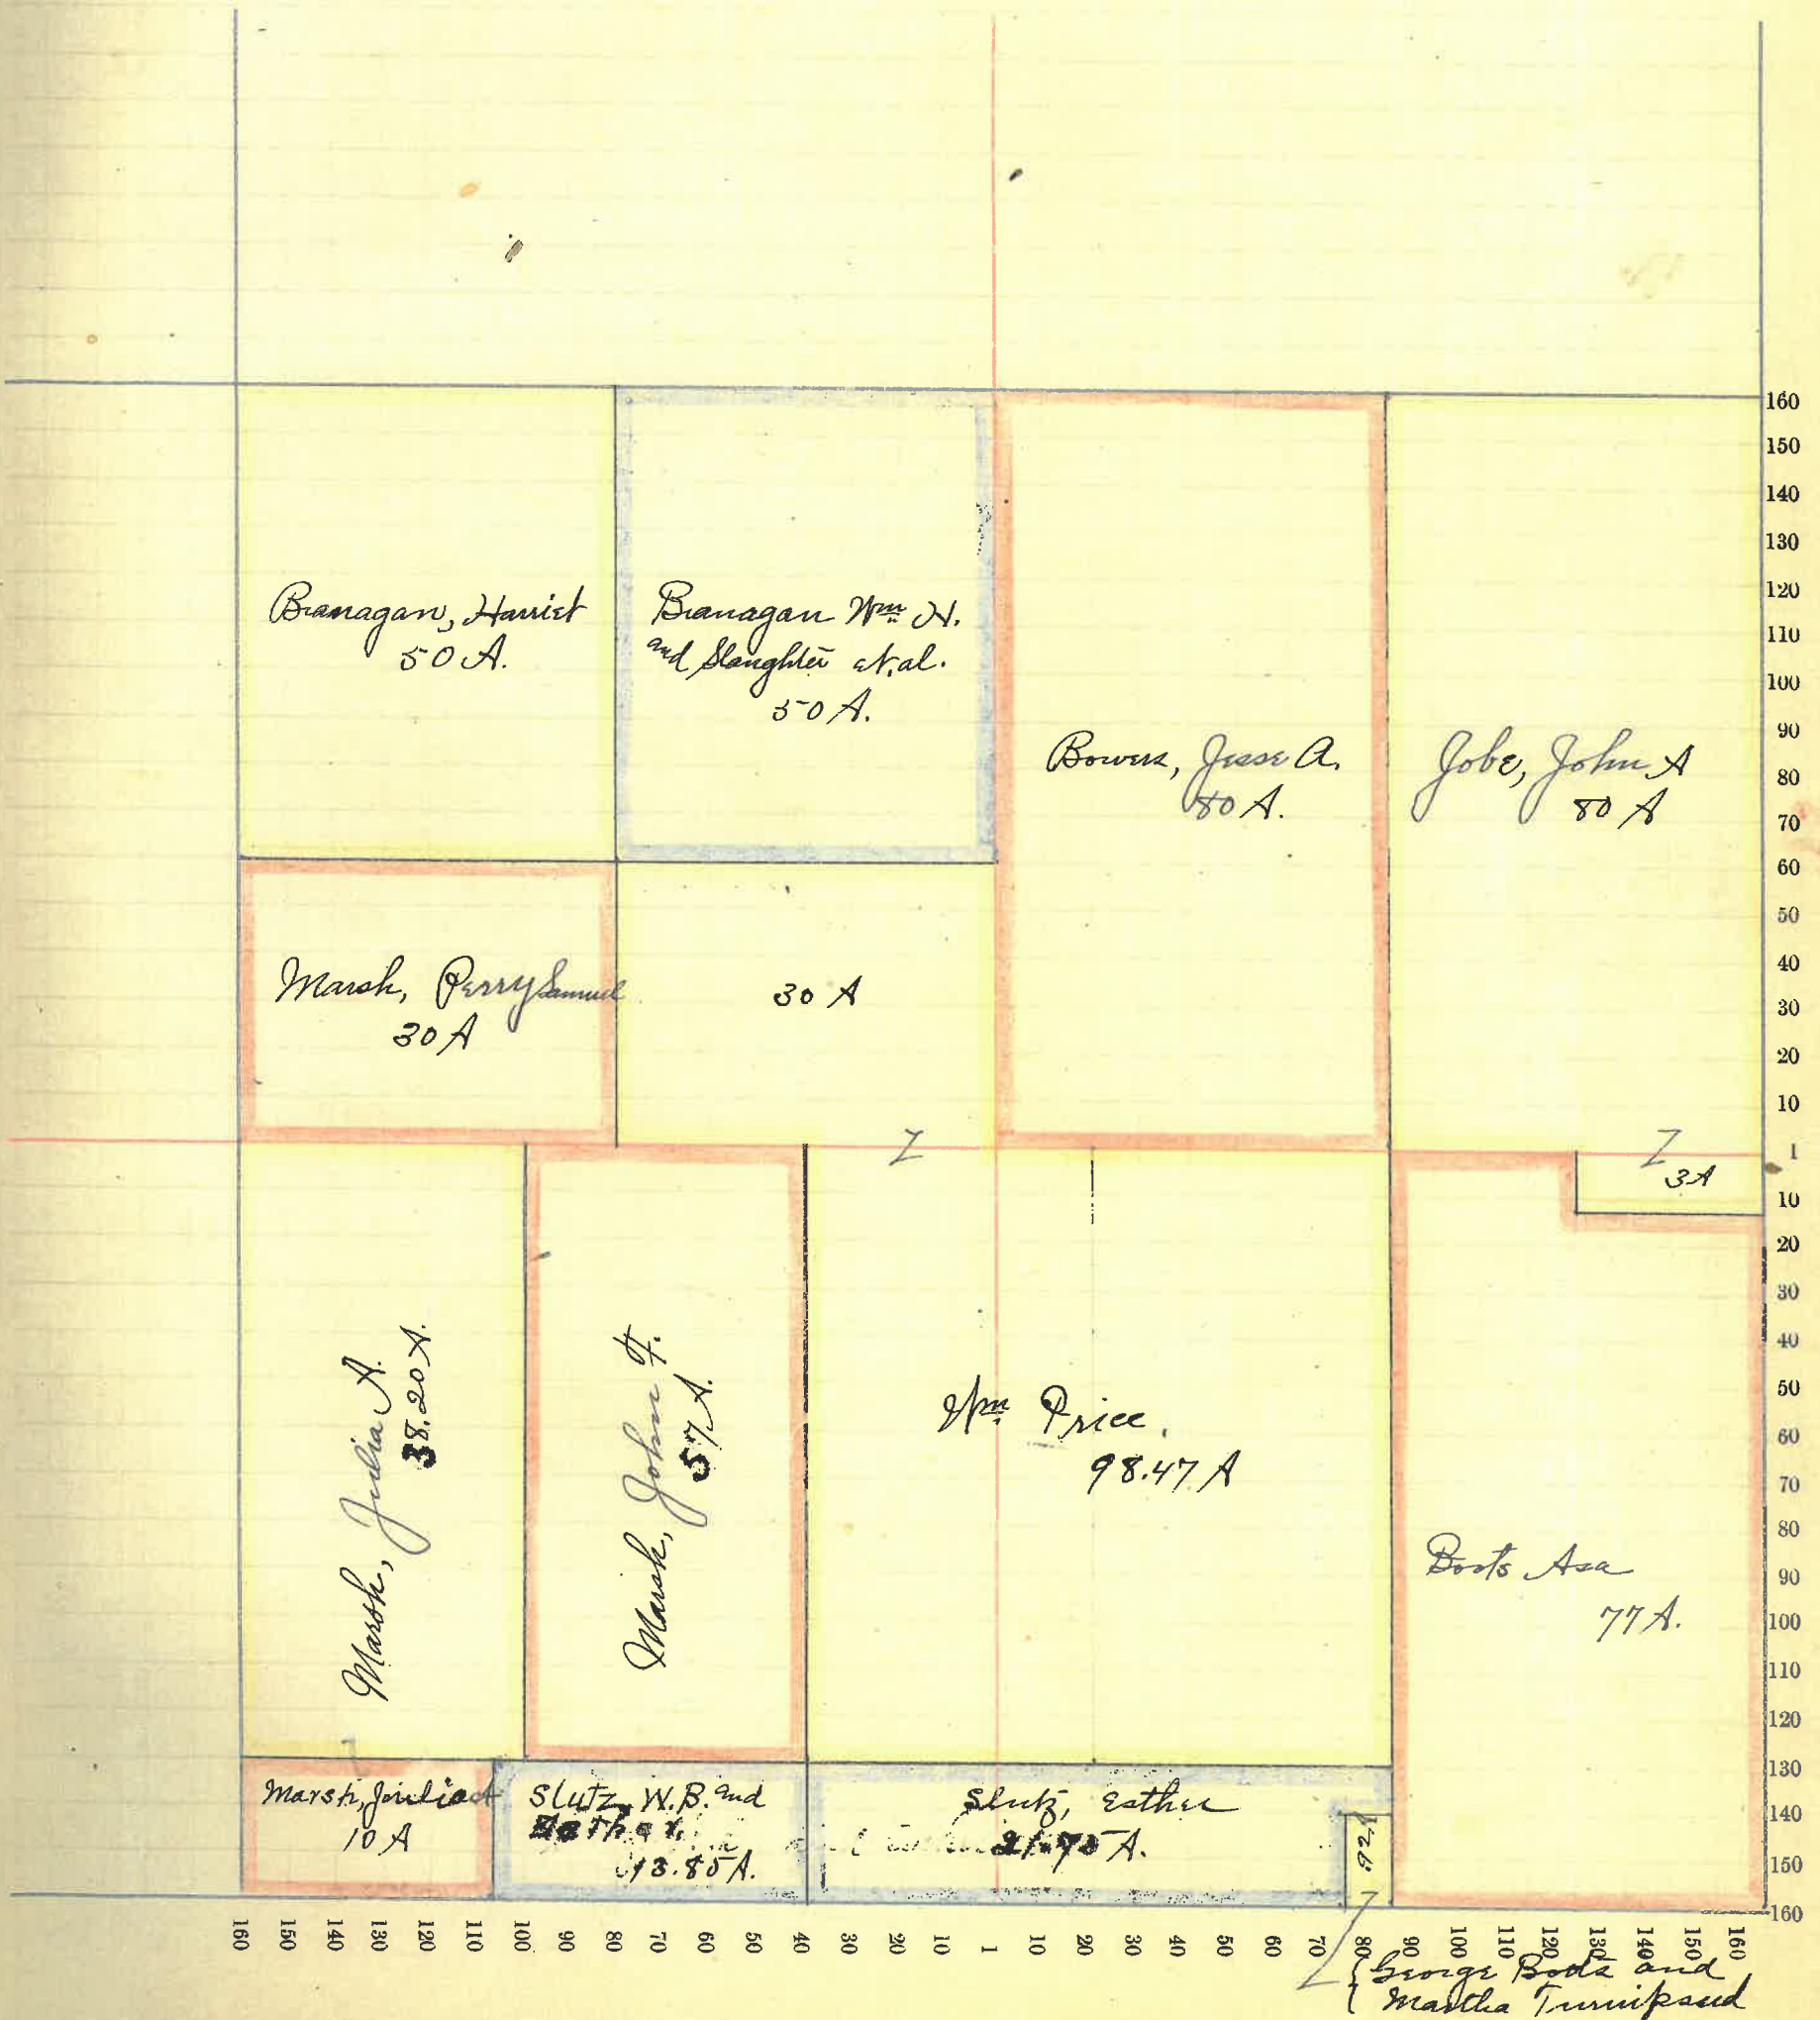 Branagan, Harriet
50 A.
Branagan Wm H.
and Slaughter et. al.
50 A.
Bowers, Jesse A.
80 A.
Jobe, John A
80 A
Marsh, Perry Samuel
30 A
30 A
3 A
Marsh, Julia A.
38.20 A.
Marsh, John F.
57 A.
Wm Price.
98.47 A
Boots Asa
77 A.
Marsh, Julia A
10 A
Slutz, W.B. and
Esther.
13.85 A.
Slutz, Esther
21.75 A.
.92
160
150
140
130
120
110
100
90
80
70
60
50
40
30
20
10
1
10
20
30
40
50
60
70
80
90
100
110
120
130
140
150
160
160 150 140 130 120 110 100 90 80 70 60 50 40 30 20 10 1 10 20 30 40 50 60 70 80 90 100 110 120 130 140 150 160
George Boots and
Martha Turnipseed